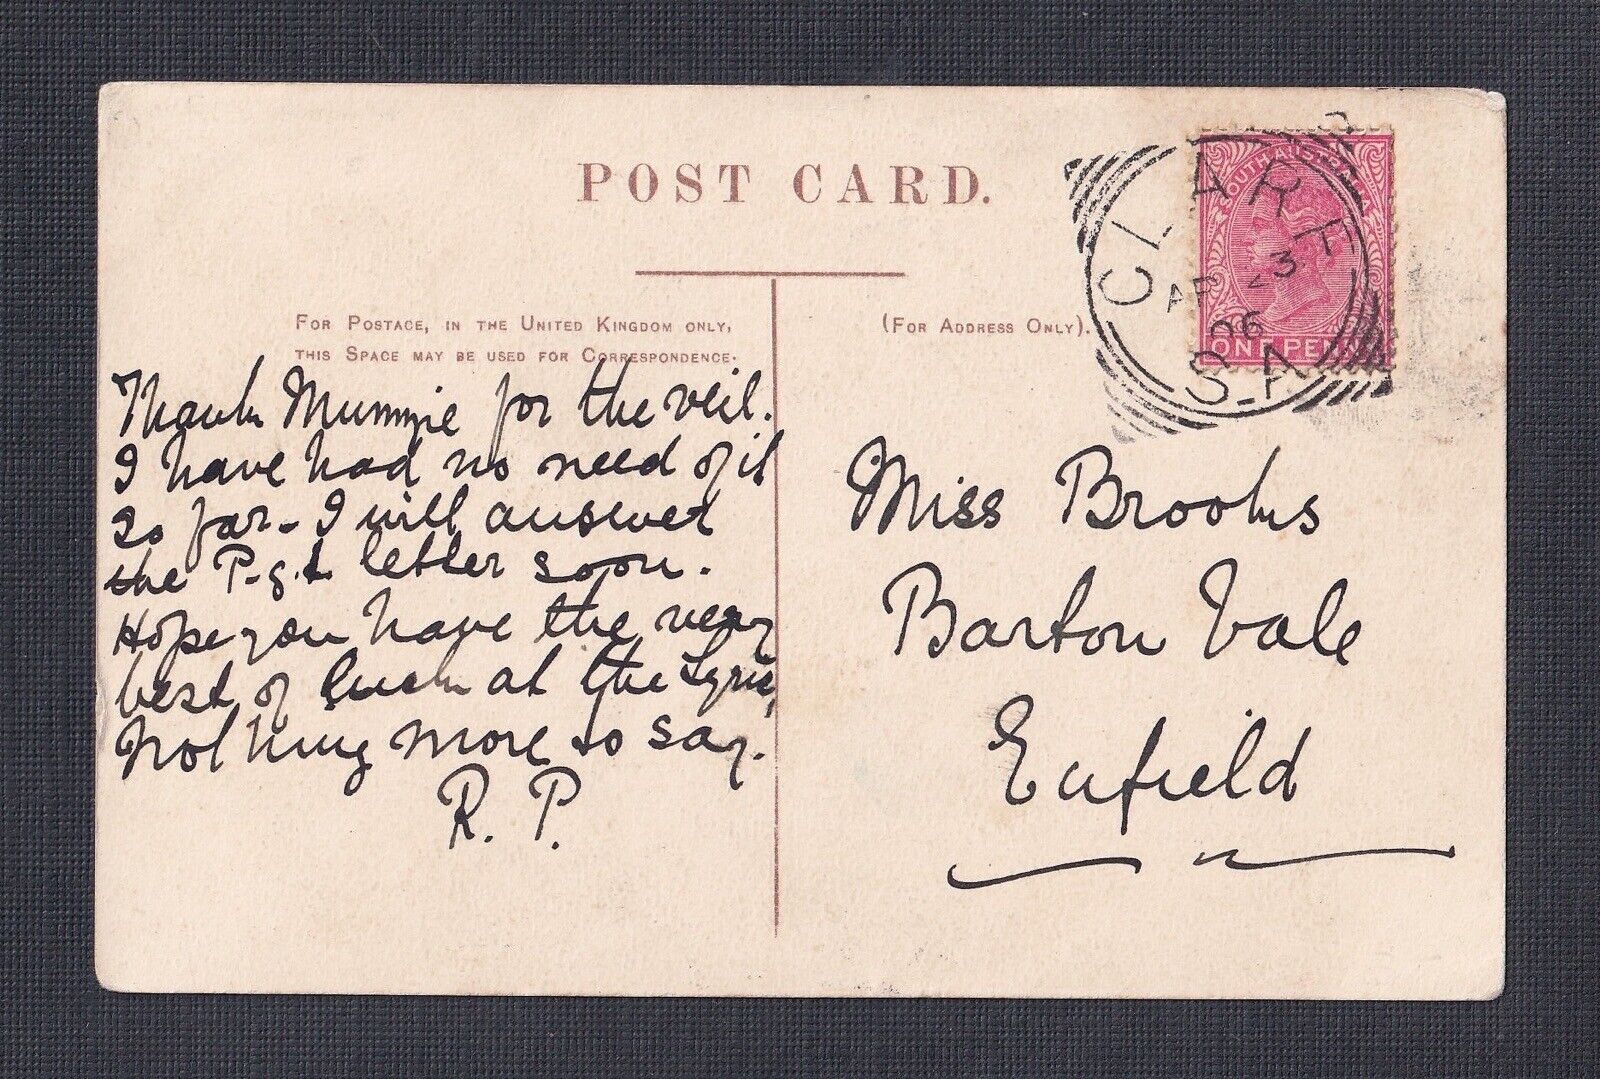 POST CARD.
FOR POSTAGE, IN THE UNITED KINGDOM ONLY,
THIS SPACE MAY BE USED FOR CORRESPONDENCE.
(FOR ADDRESS ONLY).
SOUTH AUSTRALIA
ONE PENNY
CLARE
AP 23
06
S.A
Thank Mummie for the veil.
I have had no need of it
so far - I will answer
the P-g.t letter soon.
Hope you have the very
best of luck at the Lyric,
Nothing more to say.
R. P.
Miss Brooks
Barton Vale
Enfield